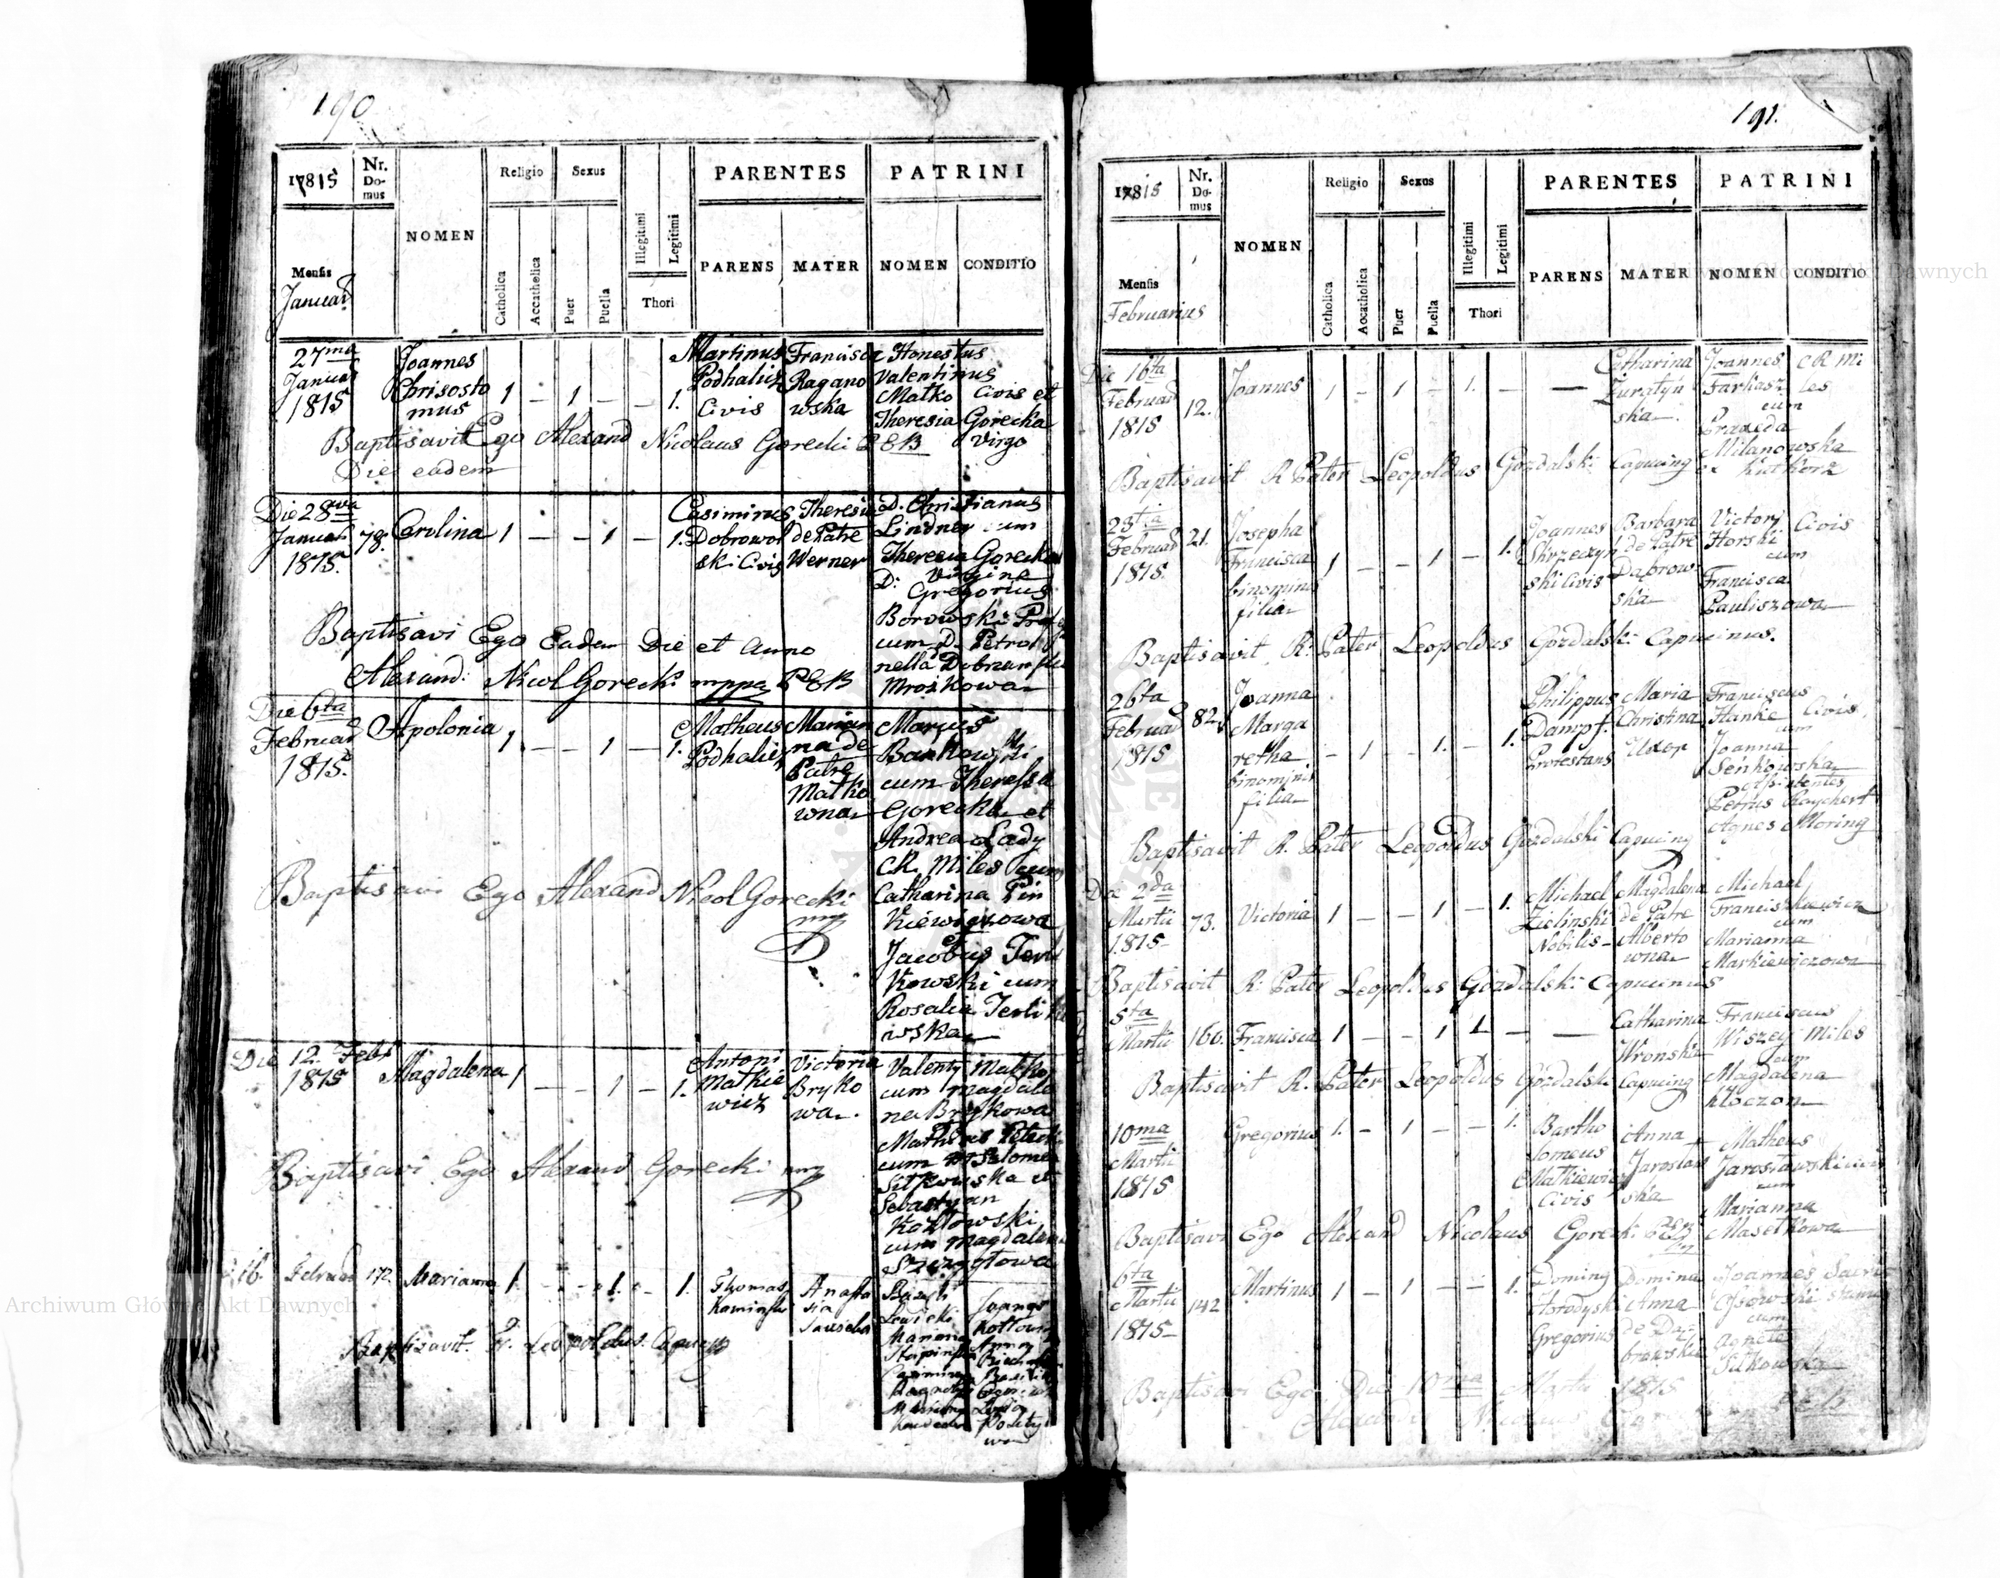 190
1815
Nr. Domus
NOMEN
Religio
Sexus
PARENTES
PATRINI
Mensis
Januar
Catholica
Accatholica
Puer
Puella
Illegitimi
Legitimi
Thori
PARENS
MATER
NOMEN
CONDITIO
27ma Januar 1815
Joannes Chrisostomus
1 – 1 – – 1.
Martinus Podhalicz Civis
Francisca Raganowska
Honestus Valentinus Matko Civis et Theresia Gorecka Virgo
Baptisavit Ego Alexand Nicolaus Gorecki PEB
Die eadem
Die 28va Januar 1815.
78.
Carolina
1 – – 1 – 1.
Casimirus Dobrowolski Civis
Theresia de Patre Werner
D. Christianus Lindner cum Theresia Gorecka Virgine
D: Gregorius Borowski cum D. Petronella
Mrozkowa
Baptisavi Ego Eadem Die et Anno
Alexand: Nicol Gorecki mppa PEB
Die 6ta Februar 1815.
Apolonia
1 – – 1 – 1.
Matheus Podhalicz
Marianna de Patre Matkowna
Marcus Bankowski cum Theressa Gorecka et Andrea Lady CR Miles cum Catharina Pinkiewiczowa et Jacobus Terlikowski cum Rosalia Terlikowska
Baptisavi Ego Alexand Nicol Gorecki
Die 12. Febr 1815
Magdalena
1 – – 1 – 1.
Antoni Matkiewicz
Victoria Brykowa
Valenty Matko cum Magdalena Brykowa
cum Salomea Sitkowska et Sebastyan Kozlowski cum Magdalena
Baptisavi Ego Alexand Gorecki
16. Februar
172.
Marianna
1. – – 1. – 1.
Thomas Kaminski
Anastasia
Baptizavit Pr. Leopoldus Capucyn
191.
1815
Nr. Domus
NOMEN
Religio
Sexus
PARENTES
PATRINI
Mensis
Februarius
Catholica
Accatholica
Puer
Puella
Illegitimi
Legitimi
Thori
PARENS
MATER
NOMEN
CONDITIO
Die 16ta Februar 1815
12.
Joannes
1 – 1 – 1. – –
Catharina Zuratynska
Joannes Farkasz cum Praxeda Milanowska
CR Miles
Baptisavit R Pater Leopoldus Gozdalski Capucing
23tia Februar 1815.
21.
Josepha Francisca binominis filia
1 – – 1 – 1.
Joannes Skrzeczynski Civis
Barbara de Patre Dabrowska
Victory Horski cum Francisca Pauliszowa
Civis
Baptisavit R: Pater Leopoldus Gozdalski Capucinus.
26ta Februar 1815
82.
Joanna Margaretha binominis filia
– 1 – 1. – 1.
Philippus Dampf. Protestans
Maria Christina Uxor
Franciscus Hanke Civis, cum Joanna Senkowska
Assistentes Petrus Raychert Agnes Moring
Baptisavit R. Pater Leopoldus Gozdalski Capucing
Die 2da Martii 1815
73.
Victoria
1 – – 1 – 1.
Michael Zielinski Nobilis
Magdalena de Patre Albertowna
Michael Franciszkiewicz cum Marianna Markiewiczowa
Baptisavit R: Pater Leopoldus Gozdalski Capucinus
5ta Martii
160.
Francisca
1 – – 1 1 – –
Catharina Wronska
Franciscus Wiszey Miles cum Magdalena Kloczon
Baptisavit R. Pater Leopoldus Gozdalski Capucing
10ma Martii 1815
Gregorius
1. – 1 – – 1.
Bartholomeus Matkiewicz Civis
Anna Jaroslawska
Matheus Jaroslawski civis cum Marianna Masetkowa
Baptisavi Ego Alexand Nicolaus Gorecki
6ta Martii 1815
142
Martinus
1 – 1 – – 1.
Doming Horodyski Gregorius
Domina Anna de Dabrowska
Joannes Osowski cum Agnete Sitkowska
Baptisavi Ego Die 10ma Martii 1815
Alexand Nicolaus
Archiwum Główne Akt Dawnych
Archiwum Główne Akt Dawnych